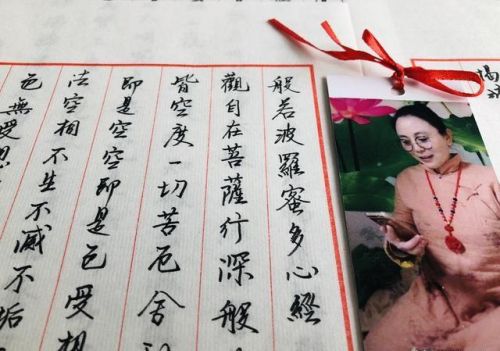 般若波羅蜜多心經
觀自在菩薩行深般
皆空度一切苦厄舍
即是空空即是色受想
法空相不生不滅不垢
色無受想